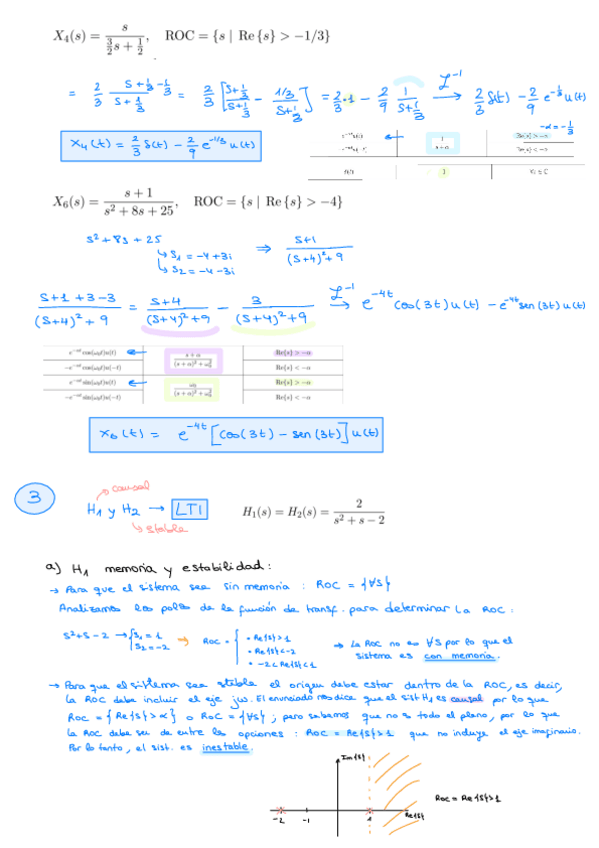 X₄(s) = s / (3/2 s + 1/2), ROC = {s | Re{s} > −1/3}
= 2/3 (s + 1/3 − 1/3)/(s + 1/3) = 2/3 [(s + 1/3)/(s + 1/3) − (1/3)/(s + 1/3)] = 2/3 · 1 − 2/9 1/(s + 1/3) →ℒ⁻¹ 2/3 δ(t) − 2/9 e^(−1/3 t) u(t)
−α = −1/3
x₄(t) = 2/3 δ(t) − 2/9 e^(−1/3) u(t)
1/(s+α)
1
X₆(s) = (s + 1)/(s² + 8s + 25), ROC = {s | Re{s} > −4}
s² + 8s + 25
↳ s₁ = −4 + 3i
↳ s₂ = −4 − 3i
⇒ (s+1)/((s+4)² + 9)
(s + 1 + 3 − 3)/((s+4)² + 9) = (s+4)/((s+4)² + 9) − 3/((s+4)² + 9) →ℒ⁻¹ e^(−4t) cos(3t) u(t) − e^(−4t) sen(3t) u(t)
e^(−αt) cos(ω₀t)u(t) (s + α)/((s + α)² + ω₀²) Re{s} > −α
−e^(−αt) cos(ω₀t)u(−t) Re{s} < −α
e^(−αt) sin(ω₀t)u(t) ω₀/((s + α)² + ω₀²) Re{s} > −α
−e^(−αt) sin(ω₀t)u(−t) Re{s} < −α
x₆(t) = e^(−4t) [cos(3t) − sen(3t)] u(t)
3
causal
H₁ y H₂ → LTI H₁(s) = H₂(s) = 2/(s² + s − 2)
↳ stable
a) H₁ memoria y estabilidad:
→ Para que el sistema sea sin memoria : ROC = {∀s}
Analizamos los polos de la función de transf. para determinar la ROC:
s² + s − 2 → { s₁ = 1 s₂ = −2 → ROC = { • Re{s} > 1 • Re{s} < −2 • −2 < Re{s} < 1
→ La ROC no es ∀s por lo que el
sistema es con memoria.
→ Para que el sistema sea stable el origen debe estar dentro de la ROC, es decir,
la ROC debe incluir el eje jw. El enunciado nos dice que el sist H₁ es causal por lo que
ROC = {Re{s} > α} o ROC = {∀s} ; pero sabemos que no es todo el plano, por lo que
la ROC debe ser de entre las opciones : ROC = Re{s} > 1 que no incluye el eje imaginario.
Por lo tanto, el sist. es inestable.
Im{s}
ROC = Re{s} > 1
−2 −1 1 Re{s}